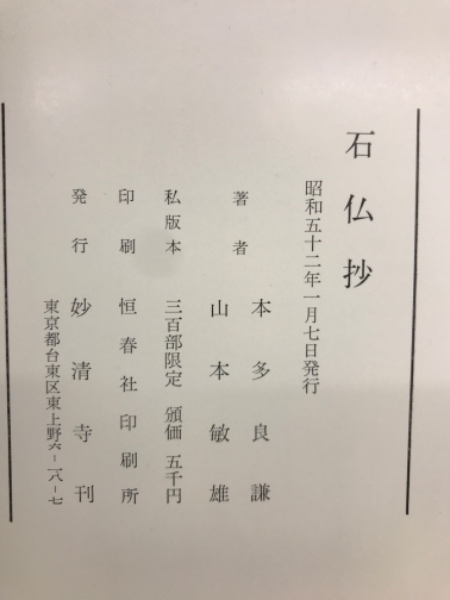 石仏抄
昭和五十二年一月七日発行
著者 本多良謙
山本敏雄
私版本 三百部限定 頒価 五千円
印刷 恒春社印刷所
発行 妙清寺刊
東京都台東区東上野六－一八－七